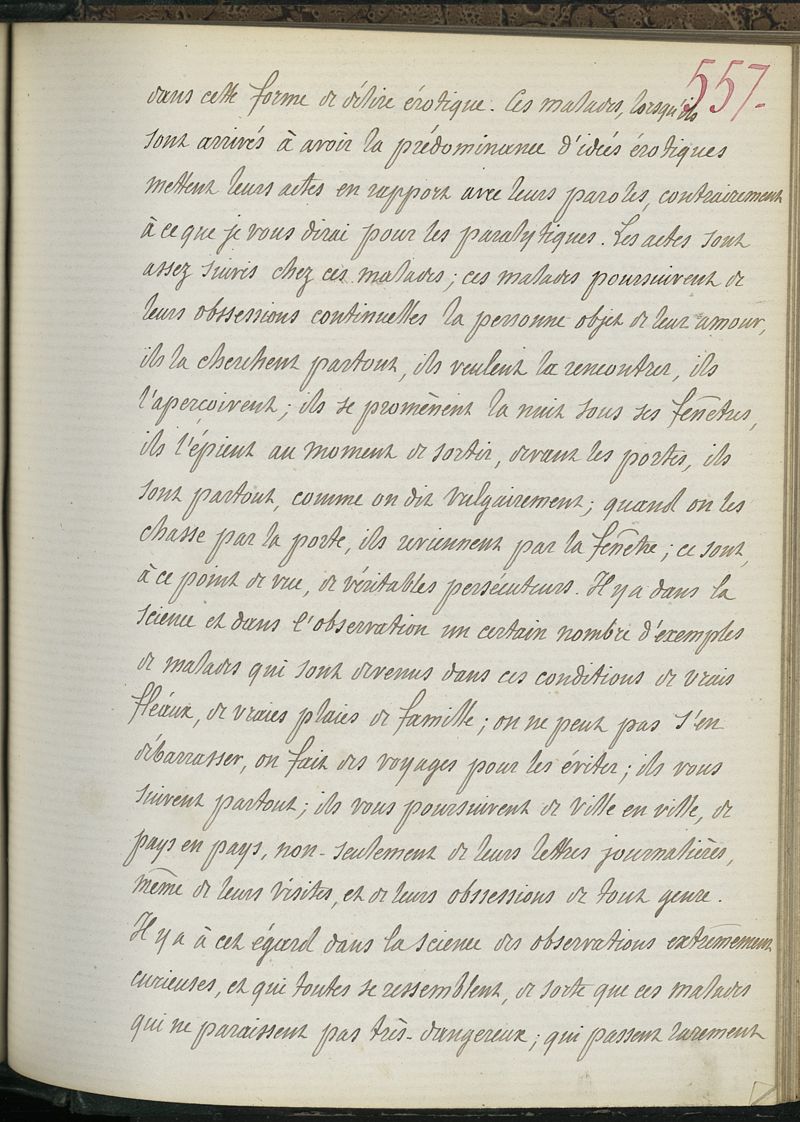 557-
dans cette forme de délire érotique. Ces malades, lorsqu'ils
sont arrivés à avoir la prédominance d'idées érotiques
mettent leurs actes en rapport avec leurs paroles, contrairement
à ce que je vous dirai pour les paralytiques. Les actes sont
assez suivis chez ces malades; ces malades poursuivent de
leurs obssessions continuelles la personne objet de leur amour,
ils la cherchent partout, ils veulent la rencontrer, ils
l'aperçoivent; ils se promènent la nuit sous ses fenêtres,
ils l'épient au moment de sortir, devant les portes, ils
sont partout, comme on dit vulgairement; quand on les
chasse par la porte, ils reviennent par la fenêtre; ce sont,
à ce point de vue, de véritables persécuteurs. Il y a dans la
science et dans l'observation un certain nombre d'exemples
de malades qui sont devenus dans ces conditions de vrais
fléaux, de vraies plaies de famille; on ne peut pas s'en
débarrasser, on fait des voyages pour les éviter; ils vous
suivent partout; ils vous poursuivent de ville en ville, de
pays en pays, non-seulement de leurs lettres journalières,
même de leurs visites, et de leurs obssessions de tout genre.
Il y a à cet égard dans la science des observations extrêmement
curieuses, et qui toutes se ressemblent, de sorte que ces malades
qui ne paraissent pas très-dangereux; qui passent rarement